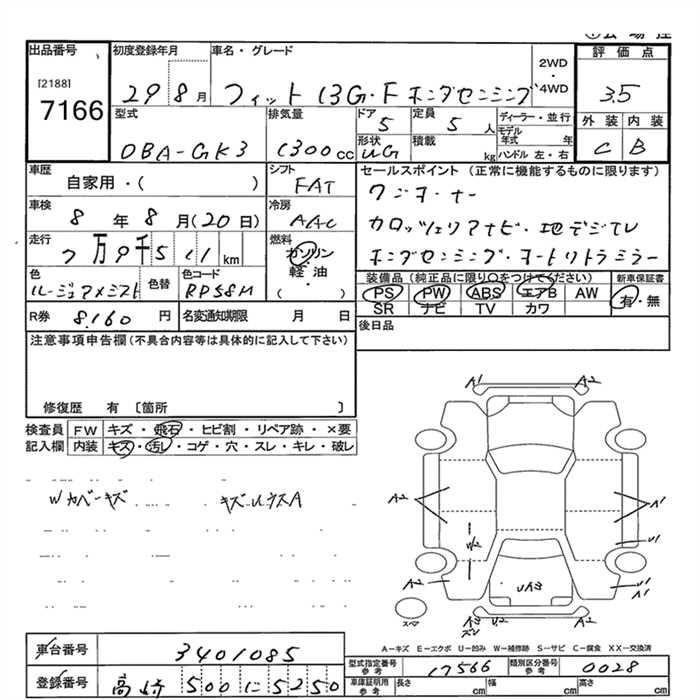 出品番号 初度登録年月 車名・グレード 2WD・4WD 評価点
[2188]
7166 29 8月 フィット 13G・F ホンダセンシング 3.5
型式 排気量 ドア 5 定員 5人 ディーラー・並行 外装 内装
DBA-GK3 1300cc 形状 UG 積載 kg モデル年式 年 ハンドル 左・右 C B
車歴 自家用・( ) シフト FAT
セールスポイント (正常に機能するものに限ります)
ワンオーナー
車検 8年8月(20日) 冷房 AAC
カロッツェリアナビ・地デジTV
走行 7万9千511km 燃料 ガソリン 軽油・( )
ホンダセンシング・オートリトラミラー
色 ルージュアメジスト 色替 色コード RP58M
装備品 (純正品に限り○をつけてください) 新車保証書
PS PW ABS エアB AW 有・無
SR ナビ TV カワ
R券 8,160円 名変通知期限 月 日
後日品
注意事項申告欄(不具合内容等は具体的に記入して下さい)
修復歴 有 〔箇所 〕
検査員 FW キズ・飛石・ヒビ割・リペア跡・×要
記入欄 内装 キズ・汚レ・コゲ・穴・スレ・キレ・破レ
Wカバーキズ キズUウスA
A1 A2
A2 A1
U1
A2 U1
A1 U2 A2
スペア
A−キズ E−エクボ U−凹み W−補修跡 S−サビ C−腐食 XX−交換済
車台番号 3401085
型式指定番号 参考 17566 類別区分番号 参考 0028
登録番号 高崎 500 に 5250
車庫証明用 参考 長さ cm 幅 cm 高さ cm